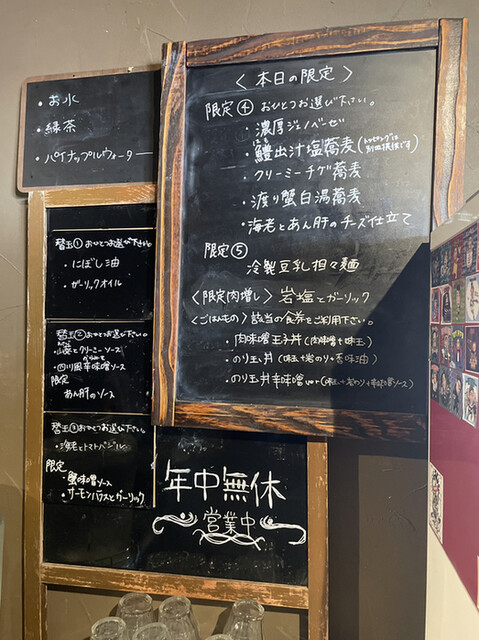 ・お水
・緑茶
・パイナップルウォーター
〈本日の限定〉
限定④ おひとつお選び下さい。
・濃厚ジェノベーゼ
はも
・鱧出汁塩蕎麦(トッピングは別皿提供です)
・クリーミーチゲ蕎麦
・渡り蟹白湯蕎麦
・海老とあん肝のチーズ仕立て
限定⑤
冷製豆乳担々麺
〈限定肉増し〉岩塩とガーリック
〈ごはんもの〉該当の食券をご利用下さい。
・肉味噌玉子丼(肉味噌+味玉)
・のり玉丼(味玉+岩のり+香味油)
・のり玉丼辛味噌ver(味玉+岩のり+辛味噌ソース)
替玉① おひとつお選び下さい。
・にぼし油
・ガーリックオイル
替玉② おひとつお選び下さい。
・山葵とクリーミーソース
・四川風辛味噌ソース
限定
あん肝のソース
替玉③ おひとつお選び下さい。
・海老とトマトバジル
限定
・蟹味噌ソース
・サーモンハラスとガーリック
年中無休
営業中